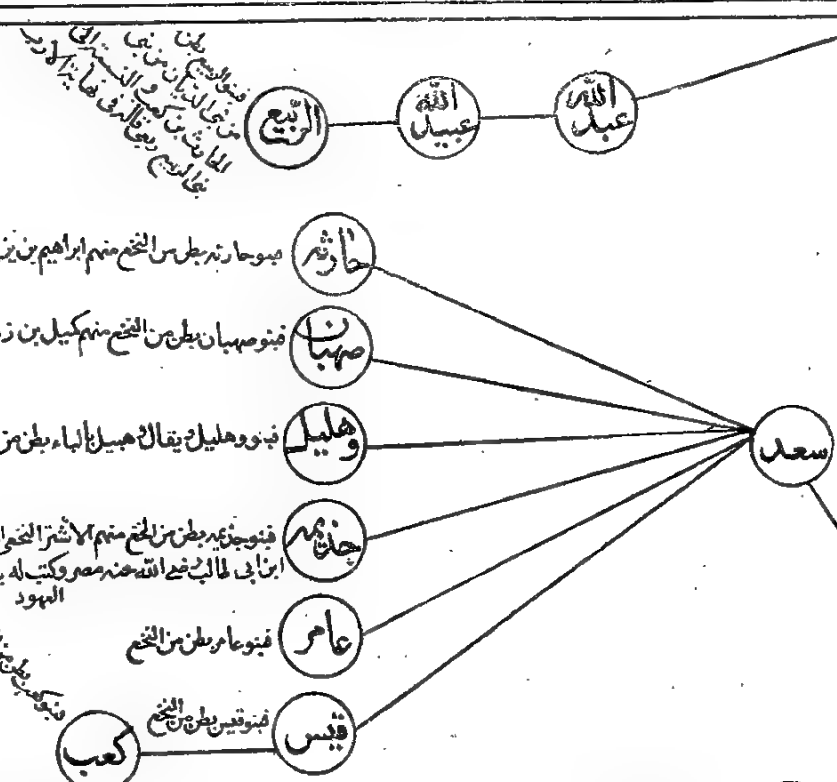 عبد الله
عبيد الله
الربيع
فبنو الربيع بطن
من بني الديان من بني
الحارث بن كعب و النسبة الى
بني الربيع ربعي قاله في نهاية الارب
حارثه
فبنو حارثه بطن من النخع منهم ابراهيم بن يز
صهبان
فبنو صهبان بطن من النخع منهم كميل بن ز
سعد
وهليل
فبنو وهليل ويقال وهبيل بالباء بطن من
جذيمه
فبنو جذيمه بطن من النخع منهم الأشتر النخعي
ابن ابي طالب رضي الله عنه مصر وكتب له
العهود
عامر
فبنو عامر بطن من النخع
قيس
فبنو قيس بطن من النخع
كعب
فبنو كعب بطن من